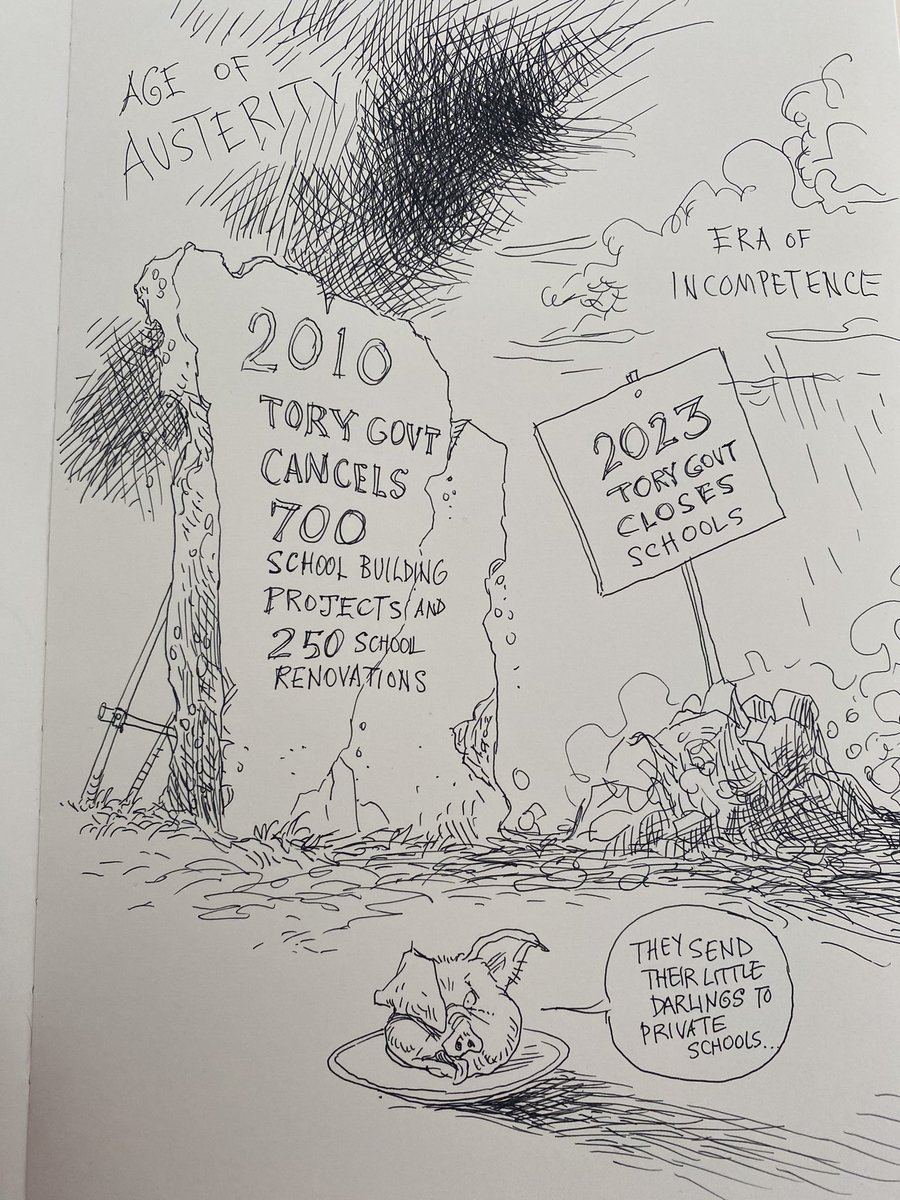 AGE OF
AUSTERITY
ERA OF
INCOMPETENCE
2010
TORY GOVT
CANCELS
700
SCHOOL BUILDING
PROJECTS AND
250 SCHOOL
RENOVATIONS
2023
TORY GOVT
CLOSES
SCHOOLS
THEY SEND
THEIR LITTLE
DARLINGS TO
PRIVATE
SCHOOLS...